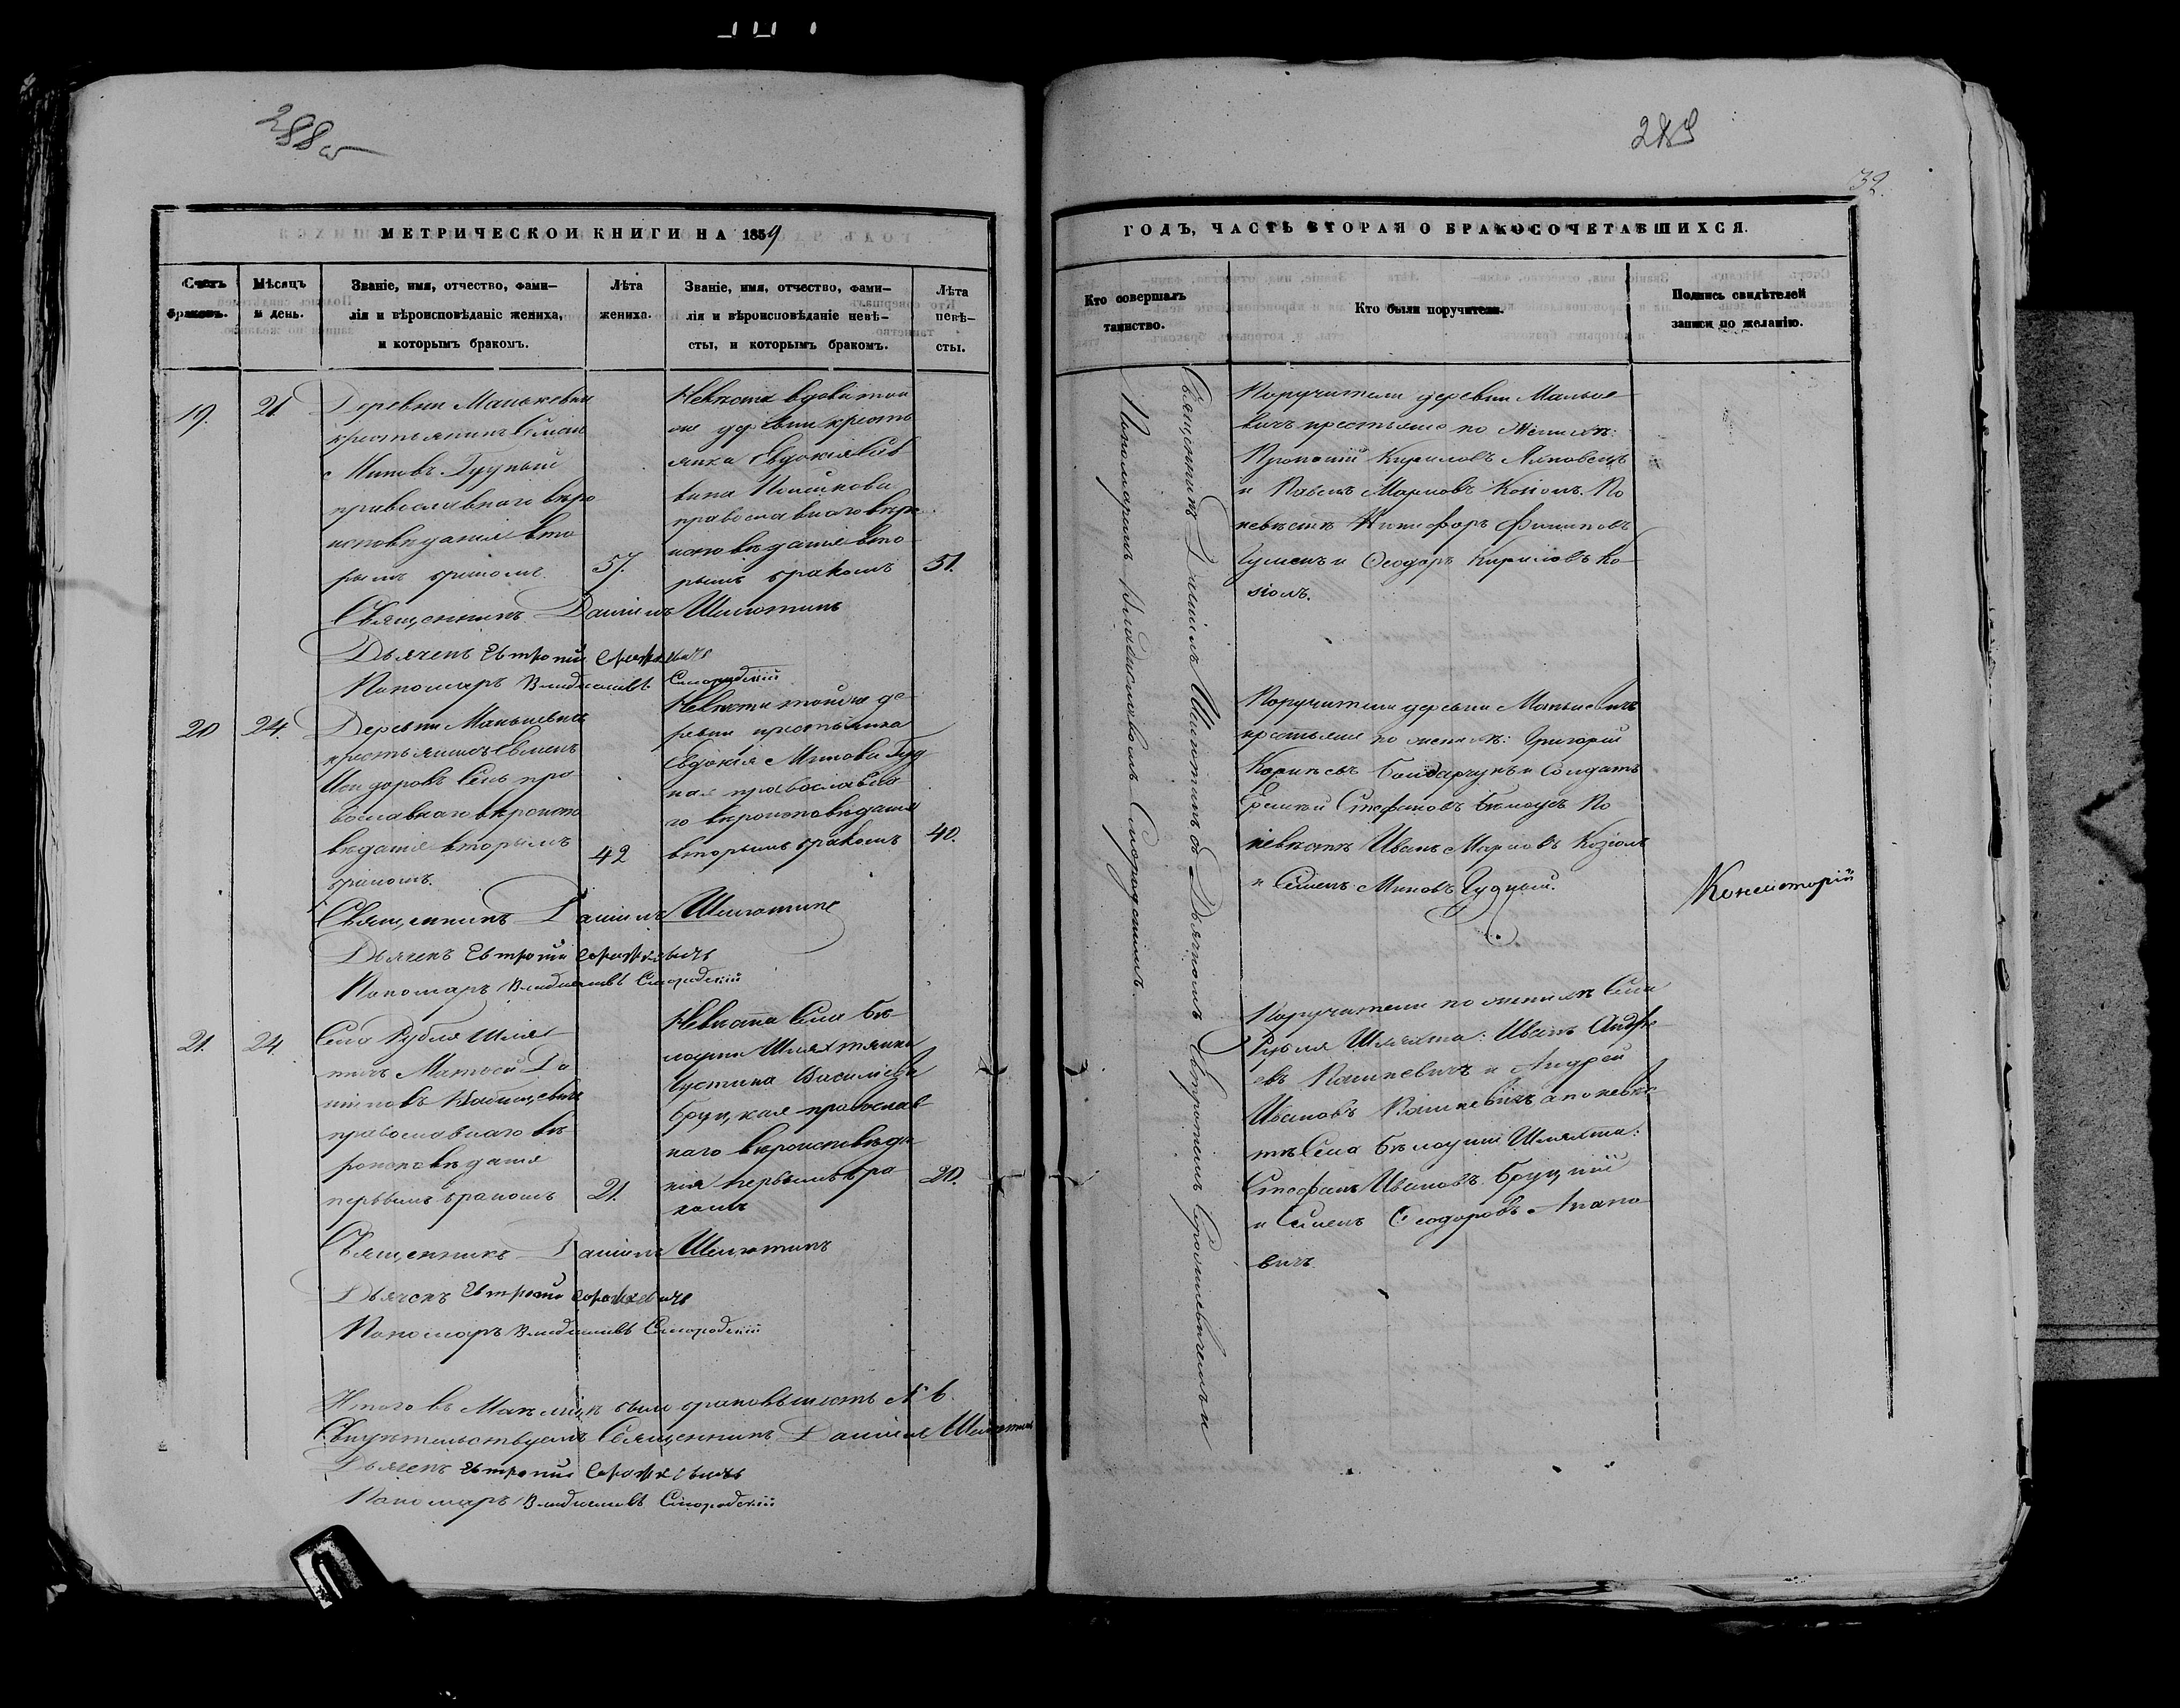 288 об
МЕТРИЧЕСКОЙ КНИГИ НА 1859
Счетъ браковъ.
Мѣсяцъ и день.
Званіе, имя, отчество, фами-
лія и вѣроисповѣданіе жениха,
и которымъ бракомъ.
Лѣта
жениха.
Званіе, имя, отчество, фами-
лія и вѣроисповѣданіе невѣ-
сты, и которымъ бракомъ.
Лѣта
невѣ-
сты.
19.
21
Деревни Манькевич
крестьянинъ Семен
Миновъ Гудный
православнаго вѣро
исповѣданія вто
рымъ бракомъ
57.
Невѣста вдова той
же деревни кресть
янка Евдокія
православнаго вѣро
исповѣданія вто
рымъ бракомъ
51.
Священникъ Даніилъ Шеметилъ
Дьячекъ Евтропій
Пономарь Владиславъ Смородскій
20
24.
Деревни Манькевичь
крестьянинъ
Исидоровъ пра
вославнаго вѣроиспо
вѣданія вторымъ
бракомъ.
42
Невѣста той же де
ревни крестьянка
Евдокія Минова Гуд
ная православна
го вѣроисповѣданія
вторымъ бракомъ
40.
Священникъ Даніилъ Шеметилъ
Дьячекъ Евтропій
Пономарь Владиславъ Смородскій
21.
24
Села Рубля Шлях
тичъ Матвей Да
ниловъ
православнаго вѣ
роисповѣданія
первымъ бракомъ
21.
Невѣста Села Бѣ
лоуши Шляхтянка
Іустина Василіева
Бруцкая православ
наго вѣроисповѣда
нія первымъ бра
комъ
20.
Священникъ Даніилъ Шеметилъ
Дьячекъ Евтропій
Пономарь Владиславъ Смородскій
Итого въ Маѣ мцѣ было браковъ шесть № 6.
Свидѣтельствуемъ Священникъ Даніилъ Шеметилъ
Дьячекъ Евтропій
Пономарь Владиславъ Смородскій
289
32.
ГОДЪ, ЧАСТЬ ВТОРАЯ О БРАКОСОЧЕТАВШИХСЯ.
Кто совершалъ
таинство.
Кто были поручители.
Подпись свидѣтелей
записи по желанію.
Священникъ Даніилъ Шеметилъ съ Дьячкомъ Евтропіемъ и
Пономаремъ Владиславомъ Смородскимъ.
Поручители деревни Манько
вичъ крестьяне по женихѣ:
Прокопій Кириловъ
и Павелъ Марковъ Козіолъ. По
невѣстѣ Никифоръ Филиповъ
и Феодоръ Кириловъ Ко-
зіолъ.
Поручители деревни Манькевичь
крестьяне по женихѣ: Григорій
Корнѣевъ Бондарчукъ и Солдатъ
Стефановъ Бѣлоусъ По
невѣстѣ Иванъ Марковъ Козіолъ
и Семенъ Миновъ Гудный.
Консисторій
Поручители по женихѣ Села
Рубля Шляхта: Иванъ Андре
евъ Пашкевичъ и Андрей
Ивановъ Пашкевичъ, а по невѣс
тѣ Села Бѣлоуши Шляхта:
Стефанъ Ивановъ Бруцкій
и Семенъ Феодоровъ
вичъ